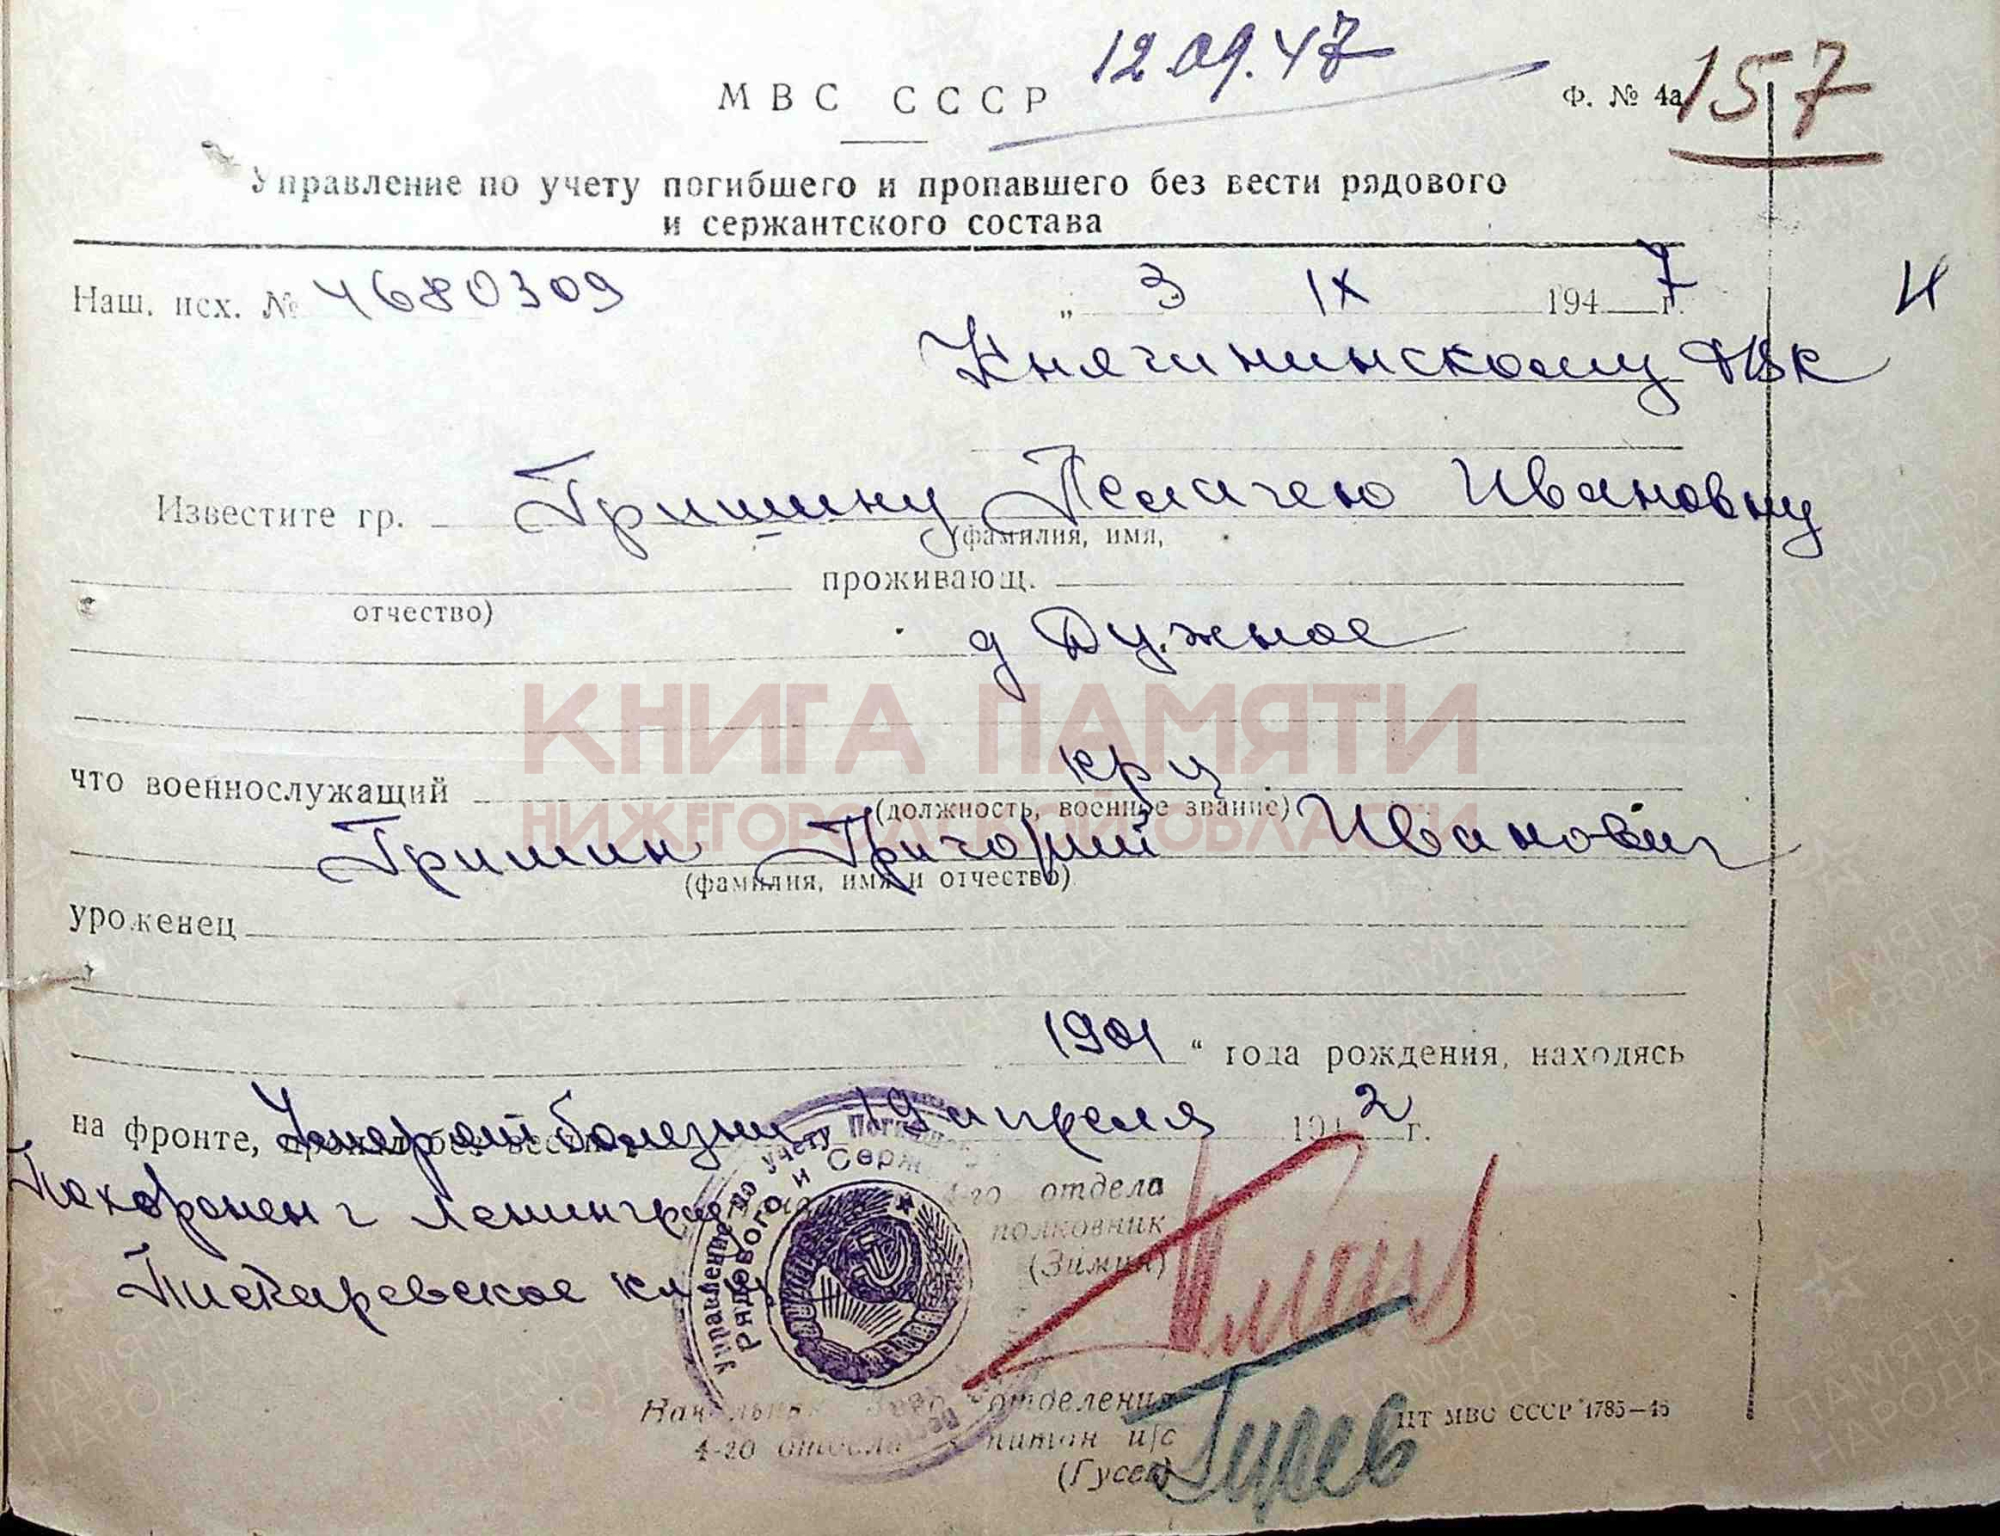 12.09.47
МВС СССР
Ф. № 4а
157
Управление по учету погибшего и пропавшего без вести рядового
и сержантского состава
Наш. исх. № 4680309
„ 3 IX 1947 г.
И
Княгининскому РВК
Известите гр. Гришину Пелагею Ивановну
(фамилия, имя,
проживающ.
отчество)
д Дужное
КНИГА ПАМЯТИ
НИЖЕГОРОДСКОЙ ОБЛАСТИ
что военнослужащий кр-ц
(должность, военное звание)
Гришин Григорий Иванович
(фамилия, имя и отчество)
уроженец
1901 " года рождения, находясь
на фронте, Умер от болезни 19 апреля 1942 г.
Похоронен г Ленинград
Пискаревское кл
4-го отдела
полковник
(Зимин)
Управление по учету Погибшего
Рядового и Серж
Начальник отделения
4-го отдела капитан и/с
(Гусев)
Гусев
ЦТ МВС СССР 1785—45
ПАМЯТЬ НАРОДА